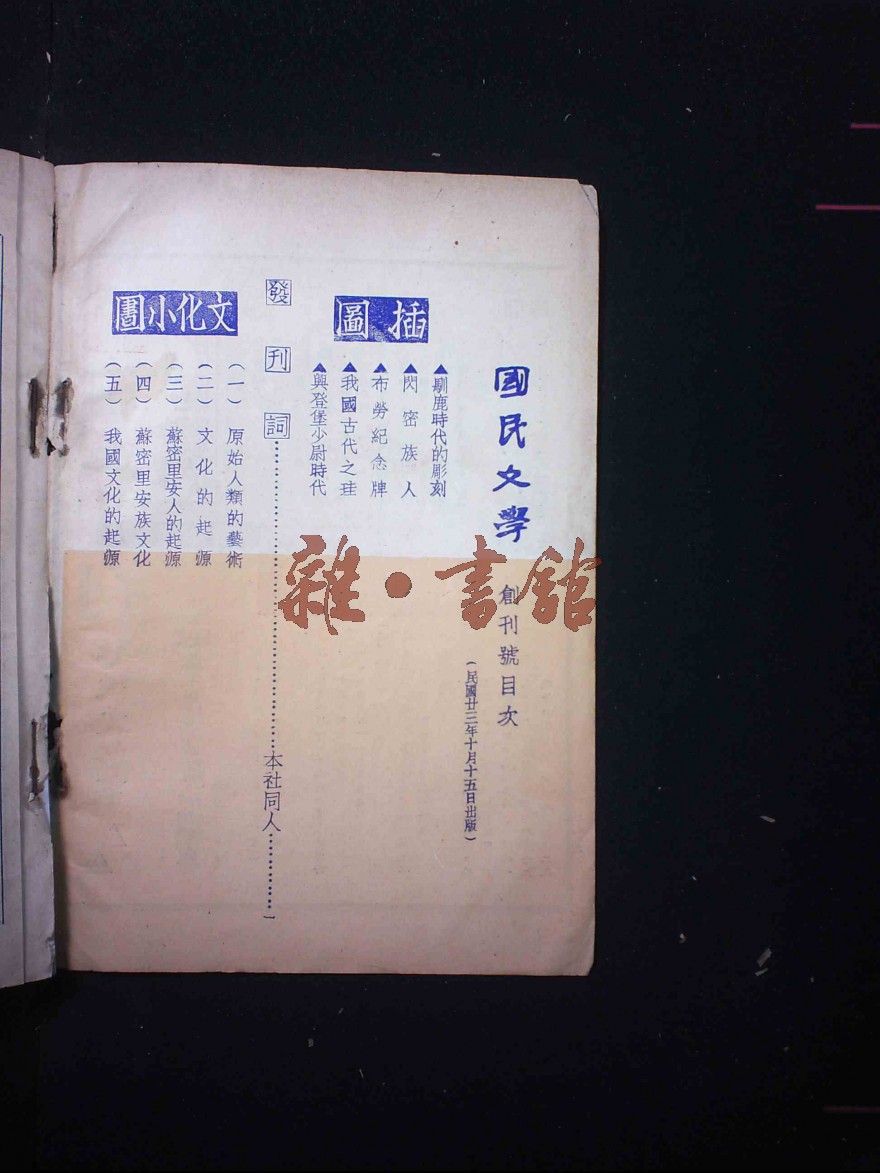 國民文學
創刊號目次
(民國廿三年十月十五日出版)
插圖
▲馴鹿時代的彫刻
▲閃密族人
▲布勞紀念牌
▲我國古代之珪
▲興登堡少尉時代
發刊詞……………………本社同人……………一
文化小圖
(一)原始人類的藝術
(二)文化的起源
(三)蘇密里安人的起源
(四)蘇密里安族文化
(五)我國文化的起源
雜·書館